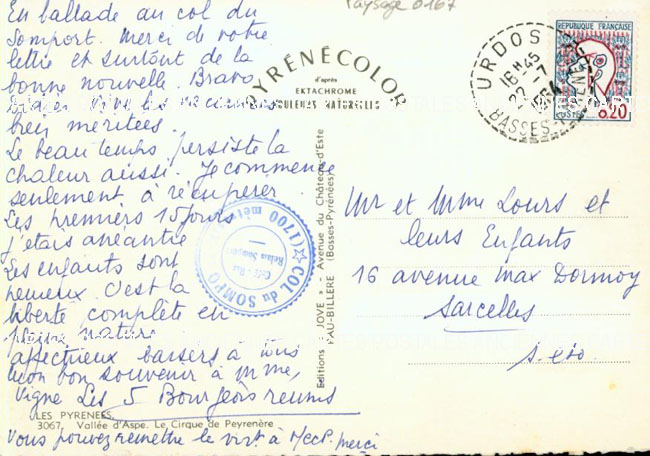 Paysage 0167
En ballade au col du
Somport. Merci de votre
lettre et surtout de la
bonne nouvelle. Bravo
Vive les vacances
bien méritées.
Le beau temps persiste la
chaleur aussi. Je commence
seulement à récupérer.
Les premiers 15 jours
j'étais anéantie
Les enfants sont
heureux. C'est la
liberté complète en
pleine nature
affectueux baisers à tous
mon bon souvenir à Mme
Vigne Les 5 Bourgeois réunis
LES PYRENEES
3067. Vallée d'Aspe. Le Cirque de Peyrenère
Vous pouvez remettre le virt à M CCP. merci
PYRÉNÉCOLOR
d'après
EKTACHROME
COULEURS NATURELLES
Editions " JOVE " - Avenue du Château-d'Este
PAU-BILLERE (Basses-Pyrénées)
COL du SOMPORT
(1700 mèt
URDOS
16H45
22-7
1964
BASSES-PYRENEES
REPUBLIQUE FRANCAISE
POSTES
0,20
Mr et Mme Lours et
leurs Enfants
16 avenue Max Dormoy
Sarcelles
S. et O.